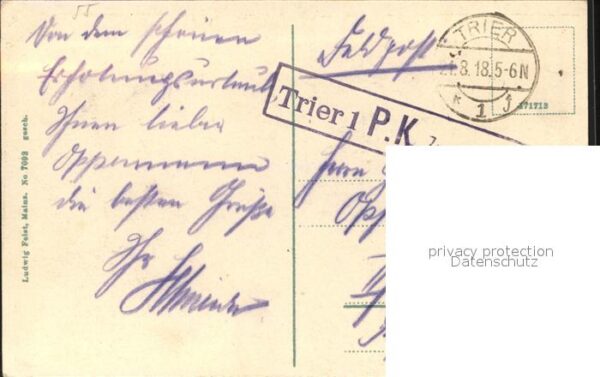 55
Von dem schönen
Erholungsurlaub
Ihnen lieber
Oppermann
die besten Grüße
Ihr
Feldpost
TRIER
.8.18.5-6N
* 1 j
171713
Trier 1 P.K.
Herrn
Opp
privacy protection
Datenschutz
Ludwig Feist, Mainz. No 7093 gesch.